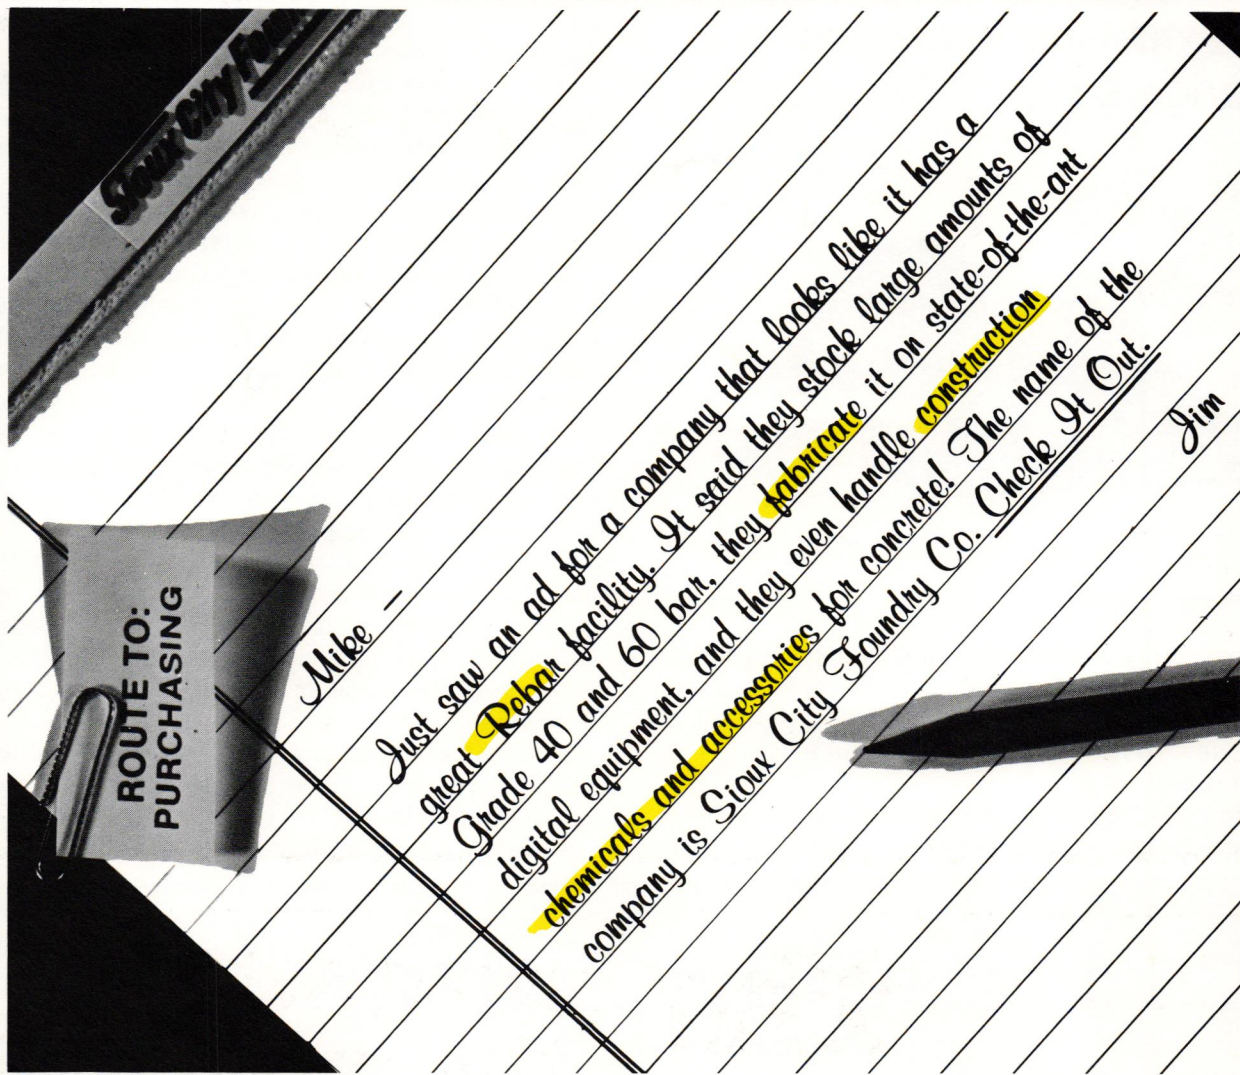 Sioux City
ROUTE TO:
PURCHASING
Mike –
Just saw an ad for a company that looks like it has a
great Rebar facility. It said they stock large amounts of
Grade 40 and 60 bar, they fabricate it on state-of-the-art
digital equipment, and they even handle construction
chemicals and accessories for concrete! The name of the
company is Sioux City Foundry Co. Check It Out.
Jim